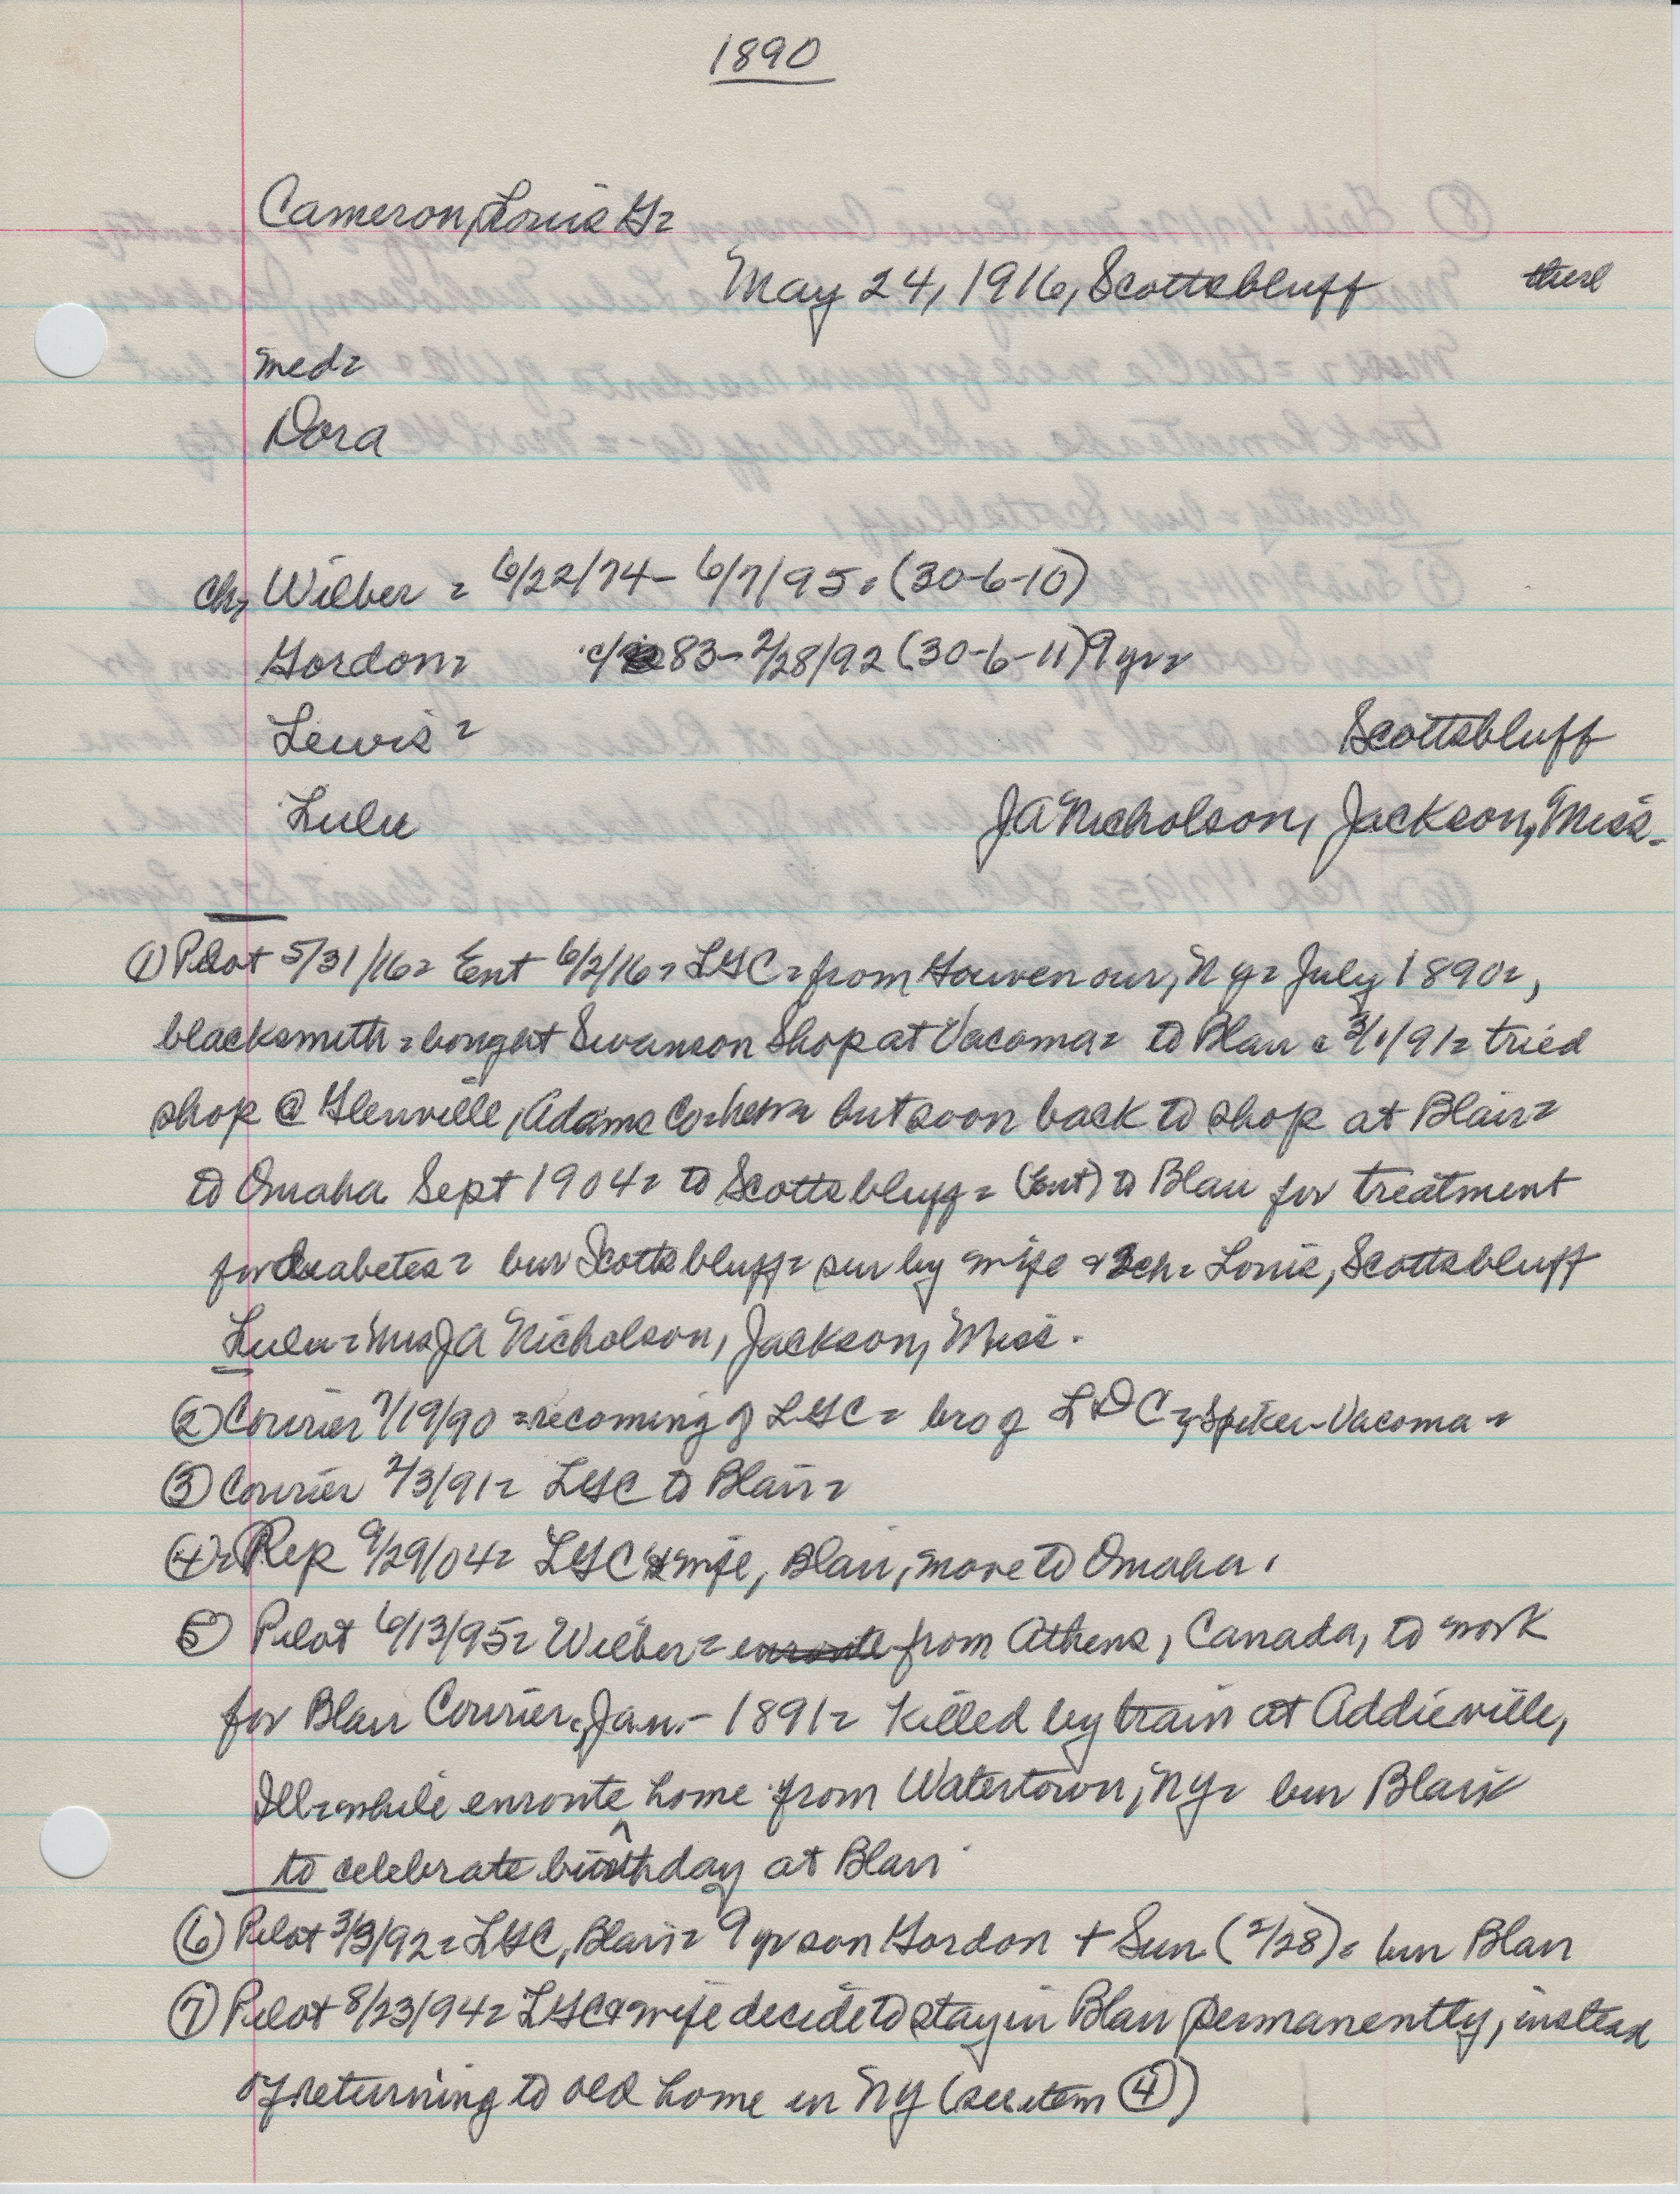 1890
Cameron, Louis G=
May 24, 1916, Scottsbluff there
med=
Dora
ch, Wilber = 6/22/74- 6/7/95. (30-6-10)
Gordon= c/ 83- 2/28/92 (30-6-11) 9 yr=
Lewis = Scottsbluff
Lulu JA Nicholson, Jackson, Miss.
① Pilot 5/31/16= Ent 6/2/16= LGC= from Gouvenour, NY= July 1890=,
blacksmith = bought Swanson Shop at Vacoma= to Blair c 3/1/91= tried
shop @ Glenville, Adams Co= but soon back to shop at Blair=
to Omaha Sept 1904= to Scottsbluff= (Ent) to Blair for treatment
for diabetes= bur Scottsbluff= sur by wife & 2ch= Louis, Scottsbluff
Lulu= Mrs JA Nicholson, Jackson, Miss.
② Courier 7/19/90 = recoming of LGC= bro of LDC= Spiker-Vacoma=
③ Courier 2/3/91= LGC to Blair=
④= Rep 9/29/04= LGC & wife, Blair, move to Omaha.
⑤ Pilot 6/13/95= Wilber= from Athens, Canada, to work
for Blair Courier, Jan.- 1891= Killed by train at Addieville,
Ill= while enroute ^ home from Watertown, NY= bur Blair
to celebrate birthday at Blair
⑥ Pilot 3/3/92= LGC, Blair= 9 yr son Gordon + Sun (2/28)= bur Blair
⑦ Pilot 8/23/94= LGC & wife decide to stay in Blair permanently, instead
of returning to old home in NY (see item ④)